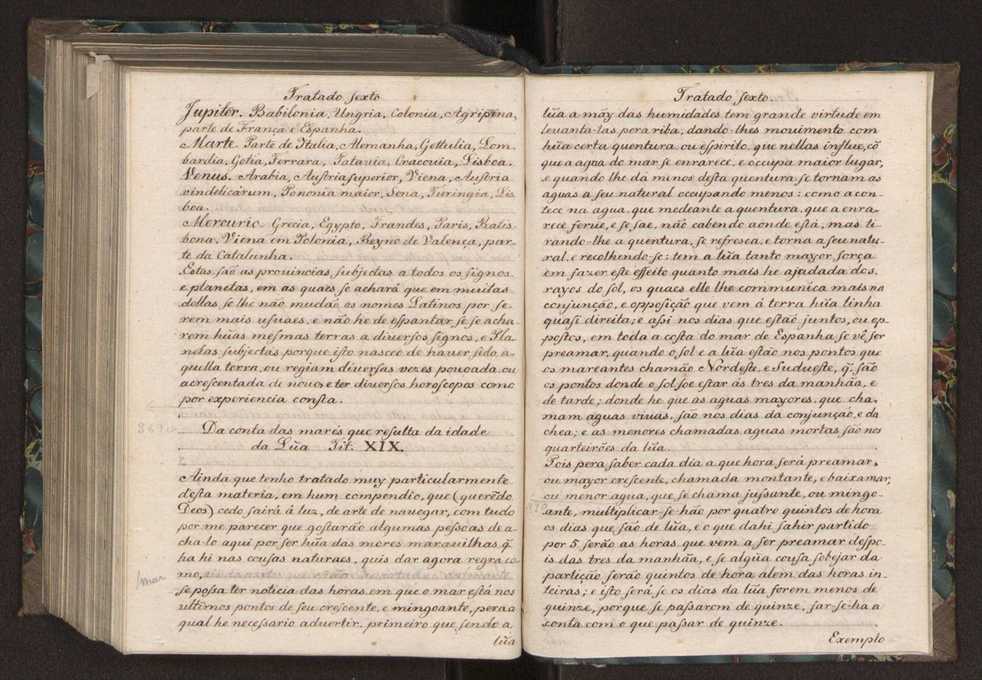 Tratado sexto
Jupiter. Babilonia, Ungria, Colonia, Agripina,
parte de França e Espanha.
Marte. Parte de Italia, Alemanha, Gettulia, Lom-
bardia, Gotia, Ferrara, Patavia, Cracovia, Lisboa.
Venus. Arabia, Austria superior, Viena, Austria
vindelicarum, Pononia maior, Sena, Turingia, Lis-
boa.
Mercurio. Grecia, Egypto, Frandes, Paris, Ratis-
bona, Viena em Polonia, Reyno de Valença, par-
te da Catalunha.
Estas são as prouincias, subjectas a todos os signos
e planetas, em as quaes se achará que em muitas
dellas, se lhe não mudão os nomes Latinos por se-
rem mais usuaes, e não he de espantar, se se acha-
rem hũas mesmas terras a diuersos signos, e Pla-
netas subjectas porque isto nasceo de hauer sido a-
quella terra, ou regiam diuersas vezes pouoada ou
acrescentada de nouo, e ter diuersos horoscopos como
por experiencia consta.
Da conta das marés que resulta da idade
da Lũa Tit. XIX.
Ainda que tenho tratado muy particularmente
desta materia, em hum compendio, que (querẽdo
Deos) cedo sairá á luz, de arte de nauegar, com tudo
por me parecer que gostarão algumas pessoas de a-
cha-lo aqui por ser hũa das mores marauilhas, q̃
ha hi nas cousas naturaes, quis dar agora regra co-
mo,
/mar
se possa ter noticia das horas, em que o mar está nos
ultimos pontos de seu crescente, e mingoante, pera a
qual he necessario aduertir, primeiro que, sendo a
lũa
Tratado sexto
lũa a mãy das humidades tem grande virtude em
leuanta-las pera riba, dando-lhes mouimento com
hũa certa quentura ou espirito, que nellas influe, cõ
que a agoa do mar se enrarece, e occupa maior lugar,
e quando lhe da menos desta quentura se tornam as
aguas a seu natural occupando menos: como acon-
tece na agua, que mediante a quentura, que a enra-
rece ferue, e se sae, não cabendo aonde está, mas ti-
rando-lhe a quentura, se refresca, e torna a seu natu-
ral, e recolhendo-se: tem a lũa tanto mayor força
em fazer este effeito quanto mais he ajudada dos
rayos do sol, os quaes elle lhe communica mais na
conjunção, e opposição que vem á terra hũa linha
quasi direita; e assi nos dias que estão juntos, ou op-
postos, em toda a costa do mar de Espanha, se vê ser
preamar, quando o sol e a lũa estão nos pontos que
os mareantes chamão Nordeste, e Sudueste, q̃ são
os pontos donde o sol soe estar ás tres da manhãa, e
de tarde; donde he que as aguas mayores, que cha-
mam aguas viuas, são nos dias da conjunção, e da
chea; e as menores chamadas aguas mortas são nos
quarteirões da lũa.
Pois pera saber cada dia a que hora será preamar,
ou mayor crescente, chamada montante, e baixamar,
ou menor agua, que se chama jussante, ou mingo-
ante, multiplicar-se-hão por quatro quintos de hora
os dias que são de lũa, e o que dahi sahir partido
por 5 serão as horas que vem a ser preamar despo-
is das tres da manhãa, e se algũa cousa sobejar da
partição serão quintos de hora alem das horas in-
teiras; e isto será, se os dias da lũa forem menos de
quinze, porque se passarem de quinze, far-se-ha a
conta com o que passar de quinze.
Exemplo